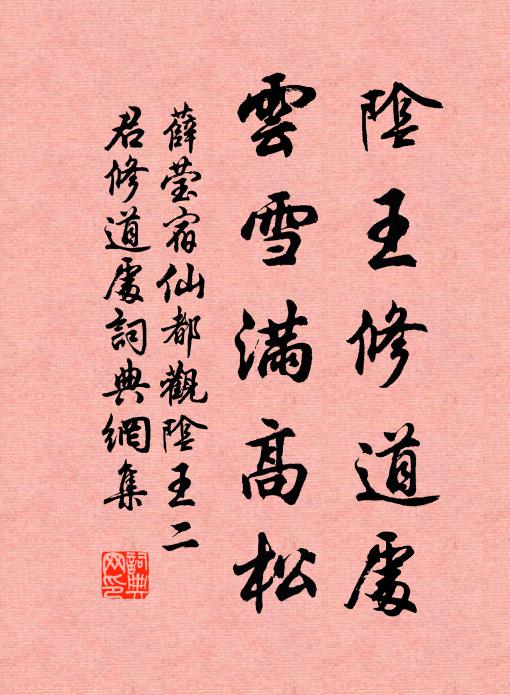 陰王修道處
雲雪滿高松
薛瑩宿仙都觀陰王二
君修道處詞典網集
詞典網印